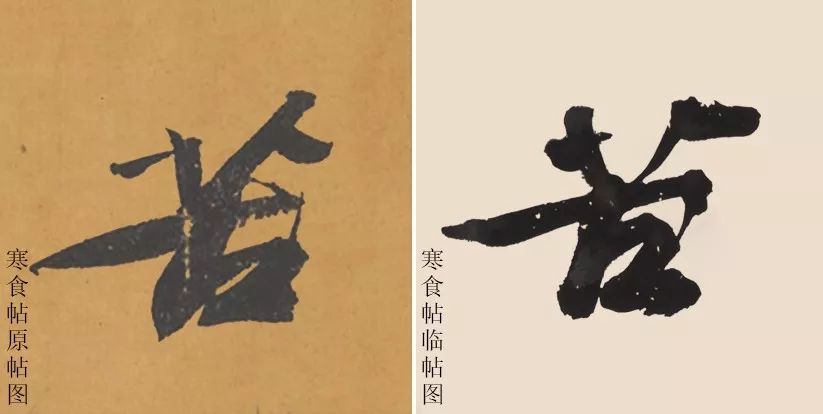 苦
寒食帖原帖图
苦
寒食帖临帖图